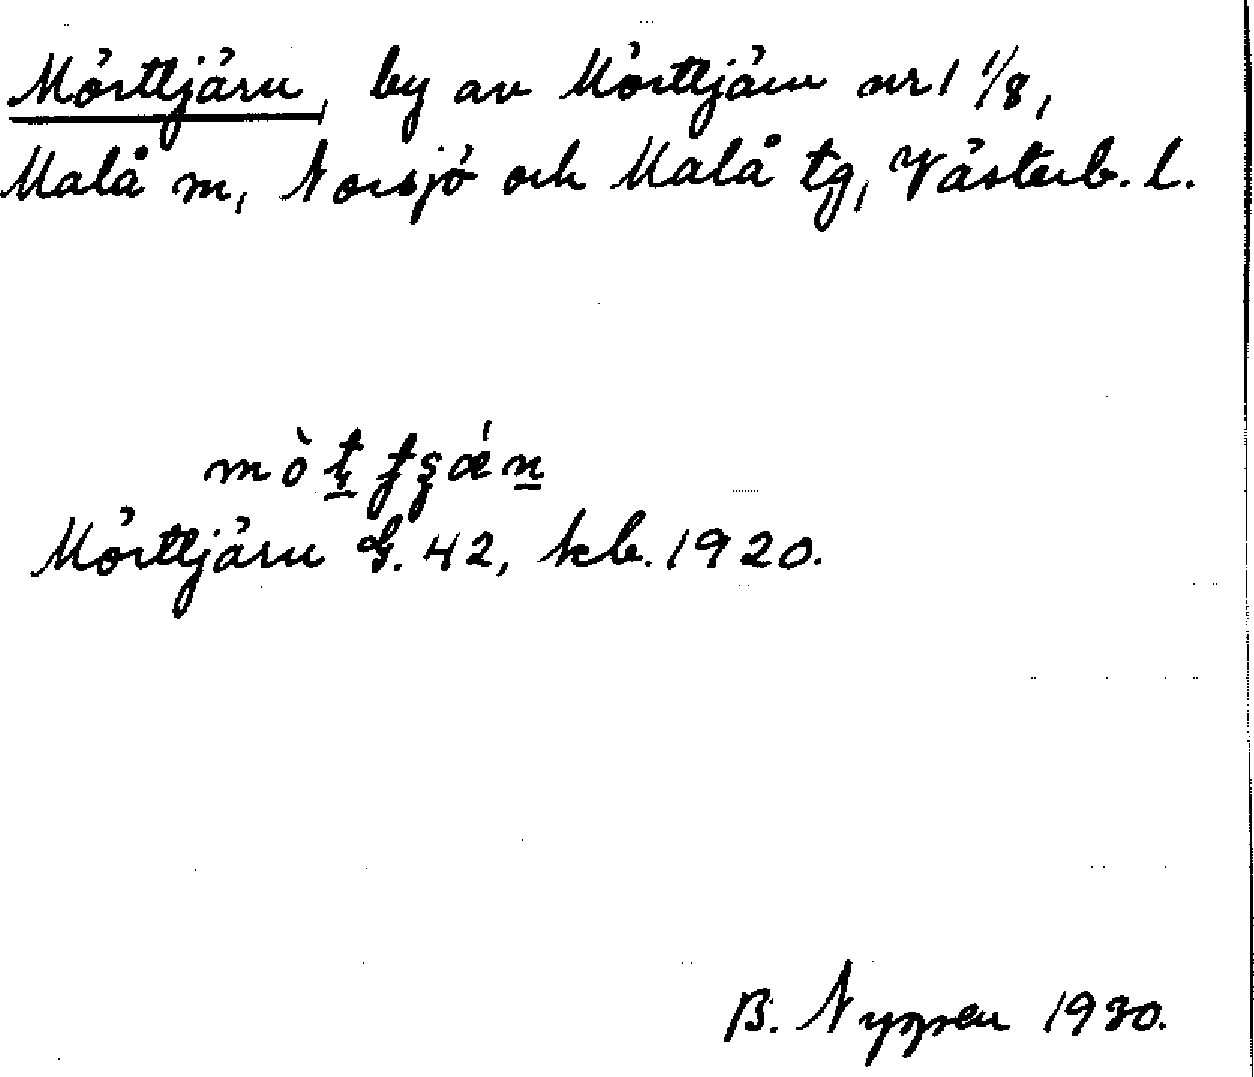 Mörttjärn, by av Mörttjärn nr 1 1/8,
Malå sn, Norsjö och Malå tg, Västerb. l.
Mörttjärn G. 42, kb. 1920.
B. Nygren 1930.